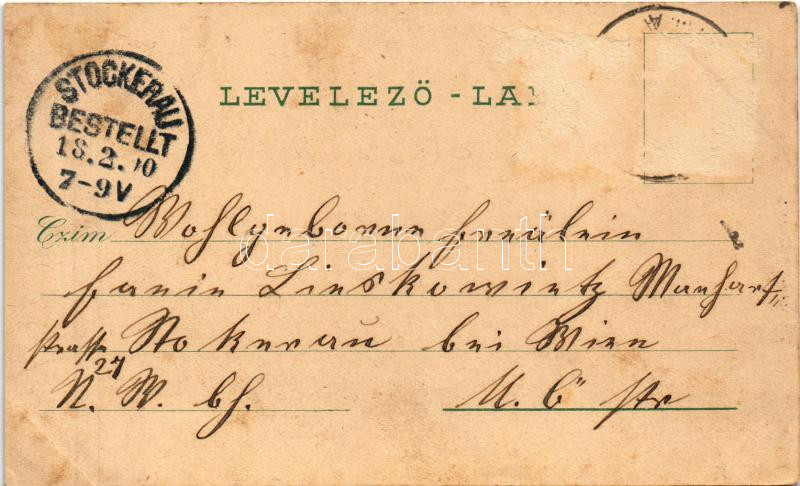 STOCKERAU
BESTELLT
18.2.00
7-9V
LEVELEZŐ - LA
Czim Wohlgeborne Freülein
Fanin Linskowintz Manhart
strasse Stokerau bei Wien
27
N. W. bh. U. Ö str
darabanth